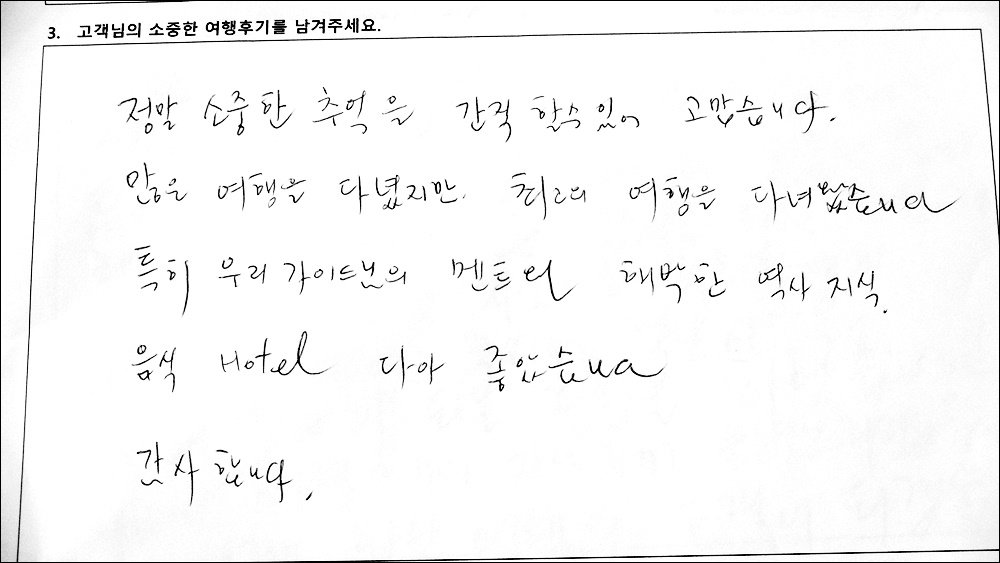 3. 고객님의 소중한 여행후기를 남겨주세요.
정말 소중한 추억을 간직 할수 있어 고맙습니다.
많은 여행을 다녔지만, 최고의 여행을 다녀왔습니다
특히 우리 가이드님의 멘트와 해박한 역사 지식.
음식 Hotel 다아 좋았습니다
감사합니다.